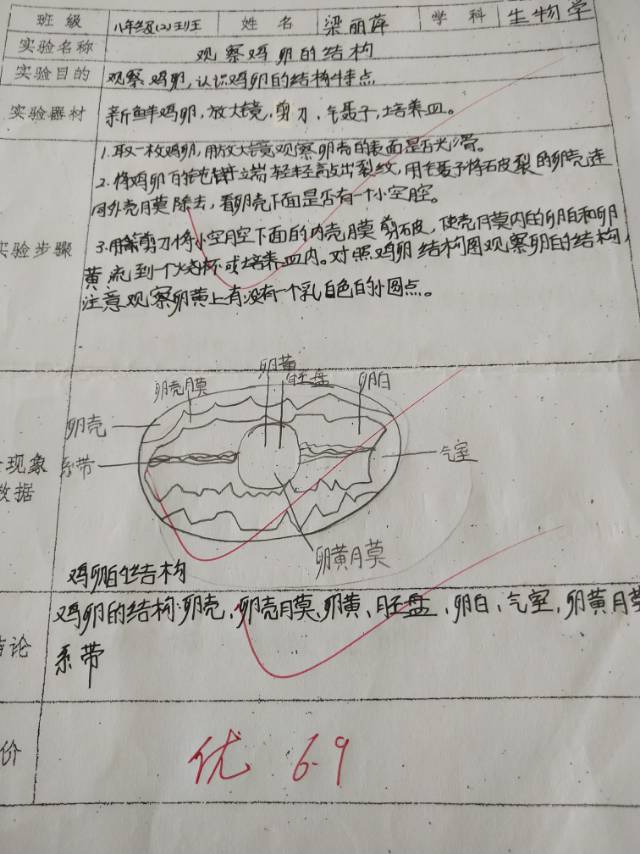 班级 八年级(2)班 姓名 梁丽萍 学科 生物学
实验名称 观察鸡卵的结构
实验目的 观察鸡卵,认识鸡卵的结构特点
实验器材 新鲜鸡卵,放大镜,剪刀,气镊子,培养皿。
1.取一枚鸡卵,用放大镜观察卵壳的表面是否光滑。
2.将鸡卵的钝端轻轻敲出裂纹,用镊子将破裂的卵壳连
同外壳膜除去,看卵壳下面是否有一个小空腔。
实验步骤
3.用剪刀将小空腔下面的内壳膜剪破,使壳膜内的卵白和卵
黄流到一个烧杯或培养皿内。对照鸡卵结构图观察卵的结构,
注意观察卵黄上有没有一个乳白色的小圆点。
卵黄
胚盘
卵壳膜
卵白
卵壳
系带
气室
现象
数据
卵黄膜
鸡卵的结构
鸡卵的结构:卵壳,卵壳膜,卵黄、胚盘、卵白、气室,卵黄膜
系带
论
价
优 6.9